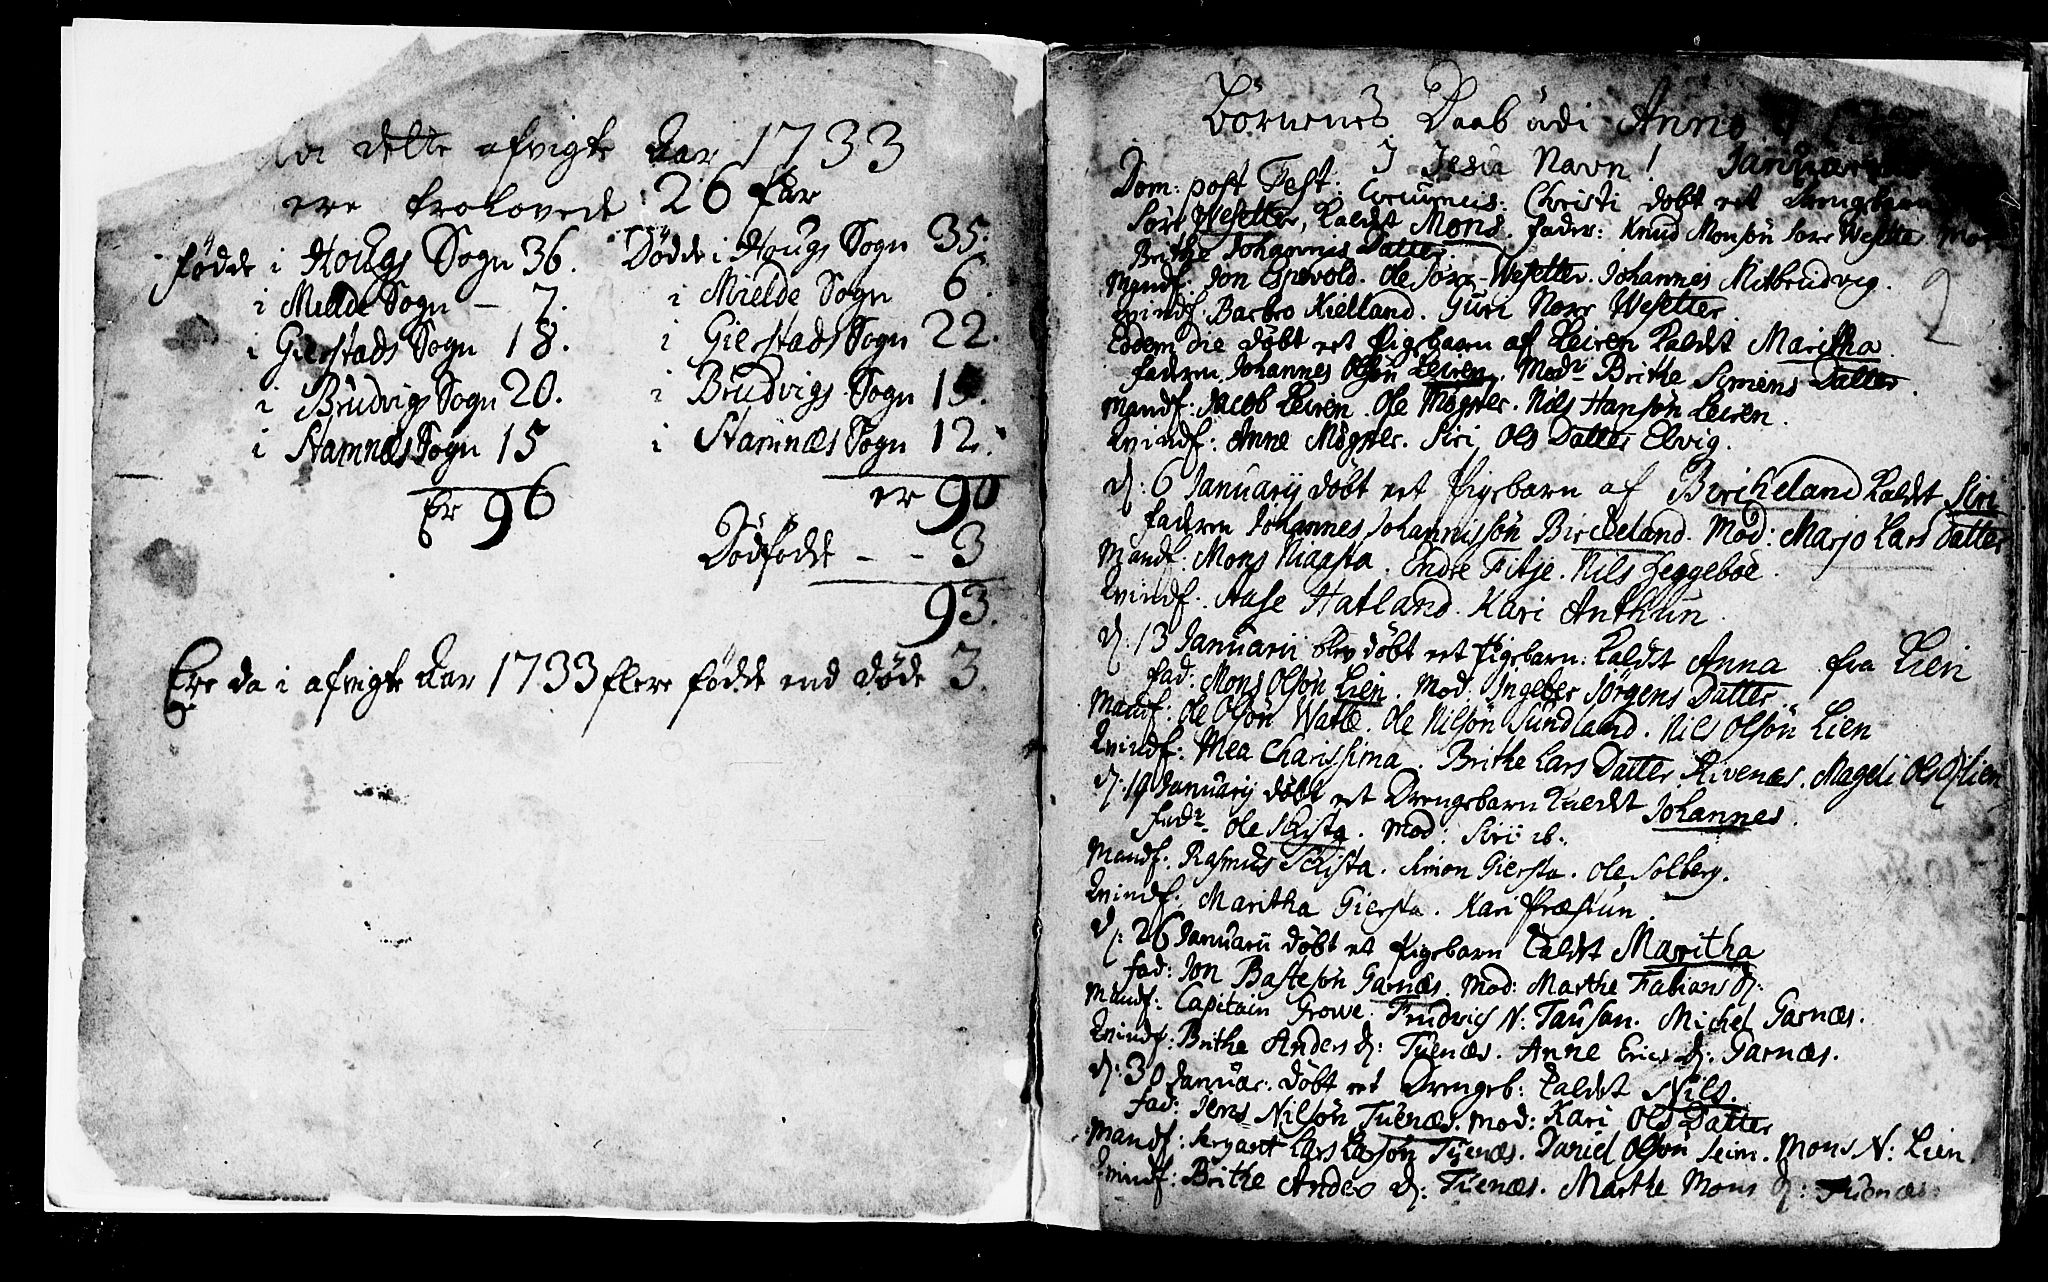 dette afvigte Aar 1733
ere trolovede 26 Par
Fødde i Hougs Sogn 36.
i Mielde Sogn – 7.
i Gierstads Sogn 18.
i Brudvigs Sogn 20.
i Stamnæs Sogn 15
Er 96
Døde i Hougs Sogn 35.
i Mielde Sogn 6.
i Gierstads Sogn 22.
i Brudvigs Sogn 15.
i Stamnæs Sogn 12.
er 90
Dødfødde – – 3
93.
Ere da i afvigte Aar 1733 flere fødde end døde 3.
Börnenes Daab udi Anno
J Jesu Navn! Januar
2
Dom: post Fest: Circumcis: Christi døbt et Drengebarn
Sörr Wesetter, kaldet Mons. Fader: Knud Monsøn Sörr Wesetter Mod
Brithe Johannis Datter.
Mandf. Jon Espevold. Ole Sörr-Wesetter. Johannes Mitbrudvig.
Qvindf. Barbro Kielland. Guri Norr Wesetter.
Eodem die døbt et Pigebarn af Leiren kaldet Maritha.
Faderen Johannes Olsøn Leiren. Modr Brithe Symens Datter.
Mandf: Jacob Leiren. Ole Mögster. Nils Hansøn Leiren.
Qvindf: Anne Mögster. Siri Ols Datter Elvig.
d: 6 Januarij døbt et Pigebarn af Birkeland kaldet Siri
Faderen Johannes Johannissøn Birckeland. Mod: Marjo Lars Datter
Mandf. Mons Niaasta. Endre Fitje. Nils Heggeboe.
Qvindf. Aase Hatland. Kari Anthun.
d: 13 Januarii blev døbt et Pigebarn: kaldet Anna fra Lien
Fad: Mons Olsøn Lien. Mod. Ingebor Jörgens Datter.
Mandf: Ole Olsøn Watle. Ole Nilsøn Sundland. Nils Olsøn Lien
Qvindf: Mea Charissima. Brithe Lars Datter Rivenæs. Mageli Ols D: Lien
d: 19 Januarij døbt et Drengebarn kaldet Johannes.
Fadr Ole Rista. Mod: Siri ib:
Mandf. Rasmus Rista. Simon Giersta. Ole Solberg.
Qvindf. Maritha Giersta. Kari Præstun.
d: 26 Januarii døbt et Pigebarn kaldet Maritha
Fad: Jon Bastesøn Garnæs. Mod: Marthe Fabians D:
Mandf: Capitain Growe. Fridrich N: Tausan. Michel Garnæs.
Qvindf: Brithe Anders D: Tuenæs. Anne Erics D: Garnæs.
d: 30 Januar: døbt et Drengeb: kaldet Nils.
Fad: Jens Nilsøn Tuenæs. Mod: Kari Ols Datter
Mandf: Sergeant Lars Larsøn Tuenæs. Daniel Olsøn Seim. Mons N: Lien.
Qvindf: Brithe Anders D: Tuenæs. Marthe Mons D: Tuenæs: